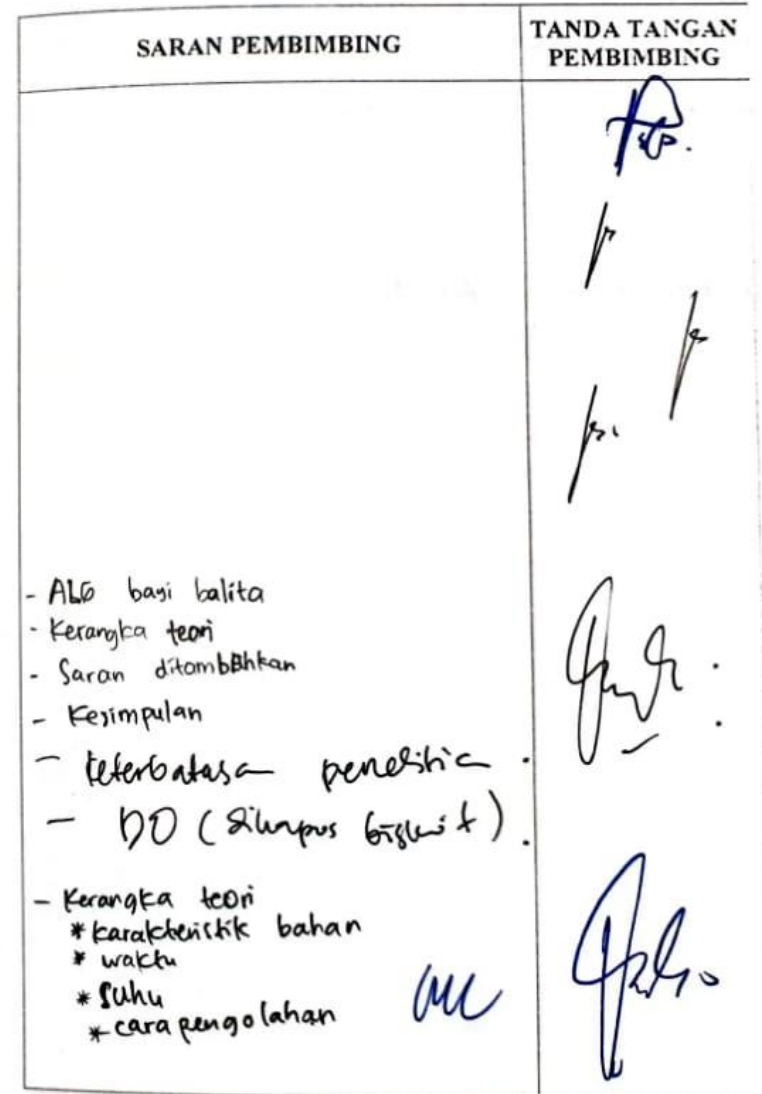 SARAN PEMBIMBING
TANDA TANGAN
PEMBIMBING
- ALG bagi balita
- Kerangka teori
- Saran ditambahkan
- Kesimpulan
- keterbatasa penelitia .
- DO (dihapus biskuit) .
- Kerangka teori
* karakteristik bahan
* waktu
* suhu
* cara pengolahan